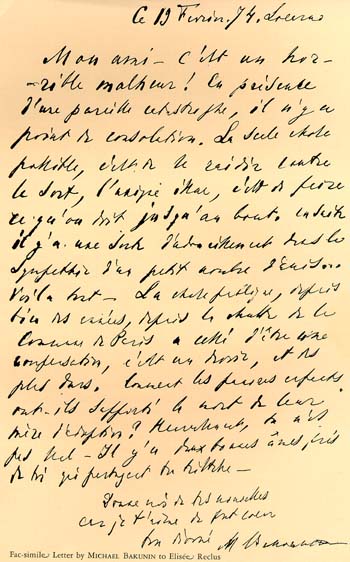 Ce 19 Février. 74. Locarno
Mon ami – c'est un hor-
-rible malheur! En présence
d'une pareille catastrophe, il n'y a
point de consolation. La seule chose
possible, c'est de se raidir contre
le sort, l'unique c'est de faire
ce qu'on doit jusqu'au bout. Ensuite
il y a une sorte d'adoucissement dans la
sympathie d'un petit nombre d'amis.
Voilà tout – La chose publique, depuis
bien des années, depuis la chute de la
Commune de Paris a cessé d'être une
compensation, c'est un devoir, et des
plus durs. Comment les pauvres enfants
ont-ils supporté la mort de leur
mère d'adoption? Heureusement, tu n'es
pas seul – Il y a deux bonnes âmes près
de toi qui partagent ta tristesse –
Donne moi de tes nouvelles
car je t'aime de tout coeur
ton dévoué M. Bakounine
Fac-simile Letter by MICHAEL BAKUNIN to Elisée Reclus